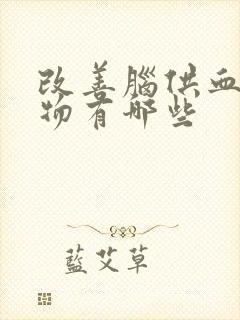 改善腦供血
物有哪些
藍艾草